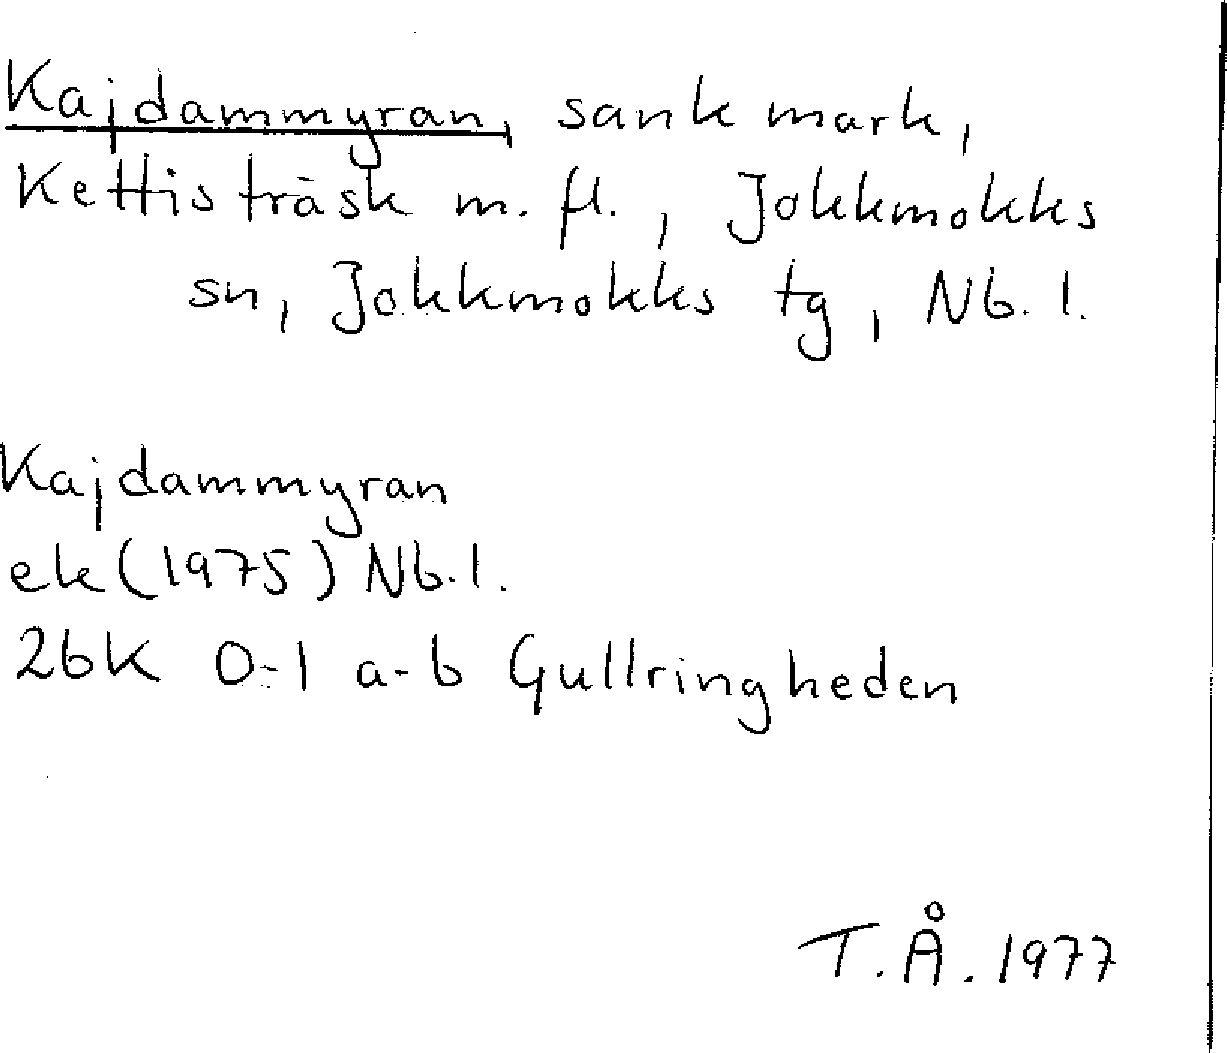 Kajdammyran, sank mark,
Kettisträsk m. fl., Jokkmokks
sn, Jokkmokks tg, Nb. l.
Kajdammyran
ek (1975) Nb. l.
26K 0-1 a-b Gullringheden
T. Å. 1977